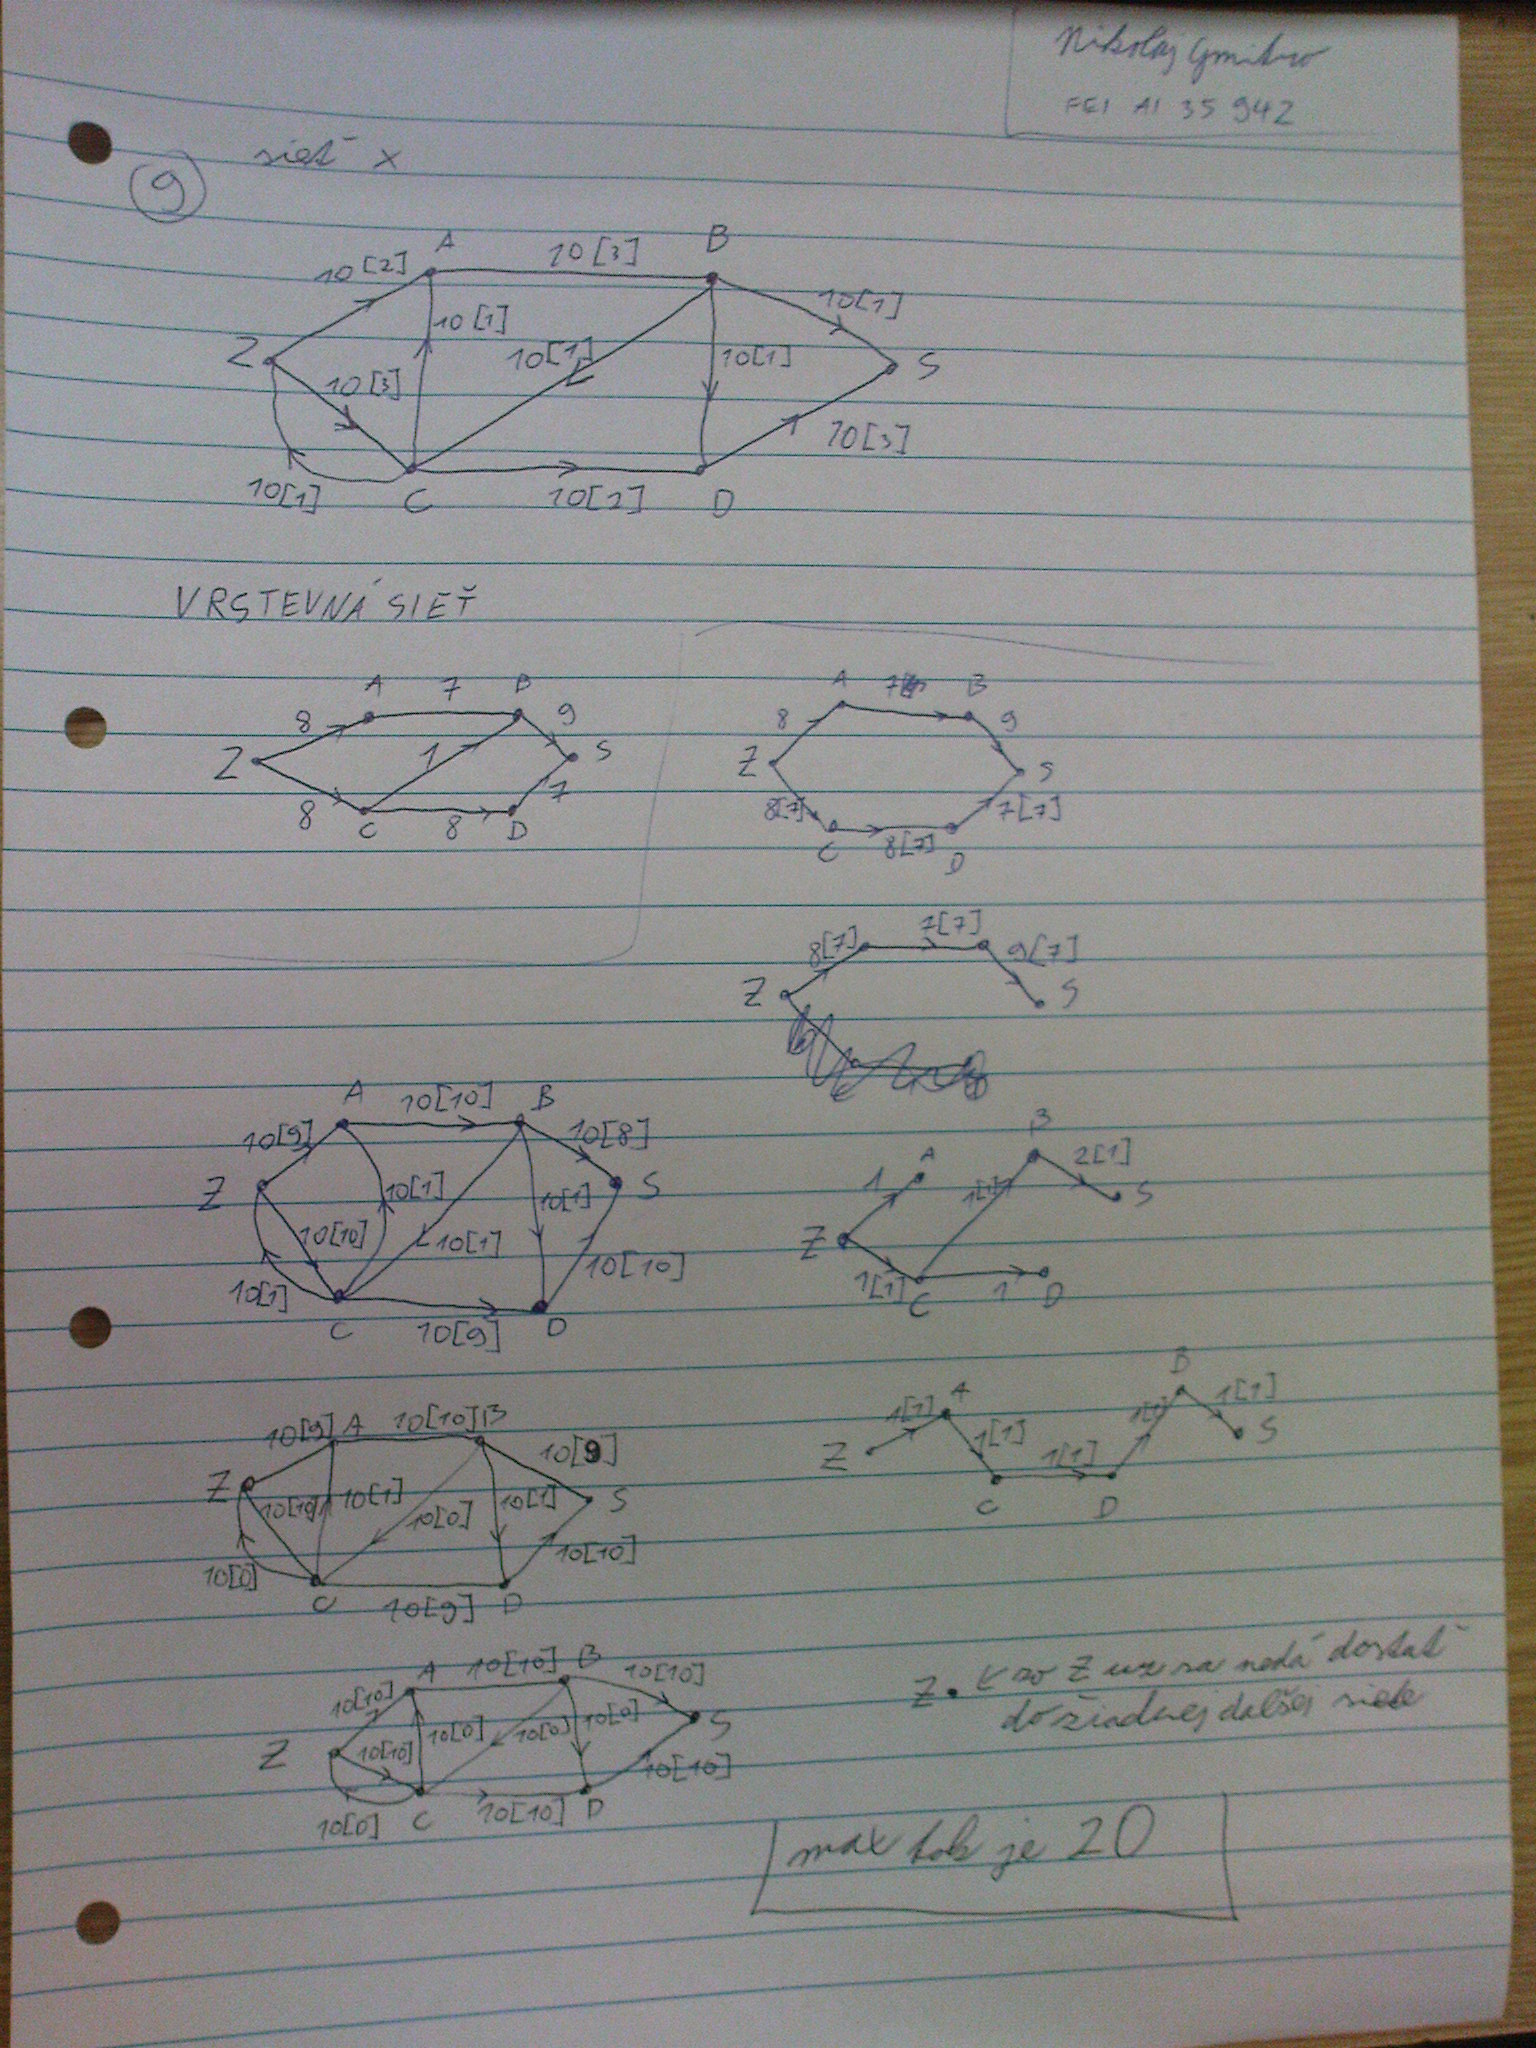 Nikolaj Gmitro
FEI AI 35 942
9 sieť x
A B
10[2] 10[3]
10[1] 10[1] 10[1] 10[1]
Z 10[3] S
10[3]
10[1] C 10[2] D
VRSTEVNÁ SIEŤ
A 7 B
8 9
Z 1 S
8 C 8 D 7
A 7 B
8 9
Z S
8[7] 7[7]
C 8[7] D
8[7] 7[7] 9[7]
Z S
A 10[10] B
10[9] 10[8]
Z 10[1] 10[1] S
10[10] 10[1]
10[1] 10[10]
C 10[9] D
B
A 1[1] 2[1]
1 S
Z
1[1] C 1 D
10[9] A 10[10] B
10[9]
Z 10[10] 10[1] 10[0] 10[1] S
10[0] 10[10]
C 10[9] D
B
1[1] A 1[1] 1[1]
Z 1[1] 1[1] S
C D
A 10[10] B 10[10]
10[10]
10[0] 10[0] 10[0] S
Z 10[10] 10[10]
10[0] C 10[10] D
Z . zo Z uz sa nedá dostať
do žiadnej dalšej siete
max tok je 20